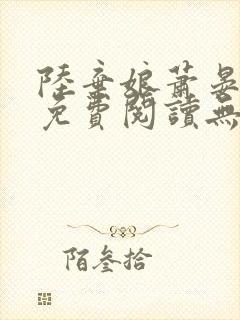 陸棄娘蕭晏
免費閱讀無
陌叁拾